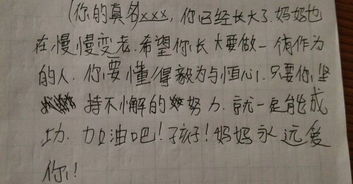 (你的真名xxx, 你已经长大了, 妈妈也
在慢慢变老. 希望你长大要做一有作为
的人. 你要懂得毅为与恒心. 只要你坚
持不懈的努力. 就一定能成
功. 加油吧! 孩子! 妈妈永远爱
你!